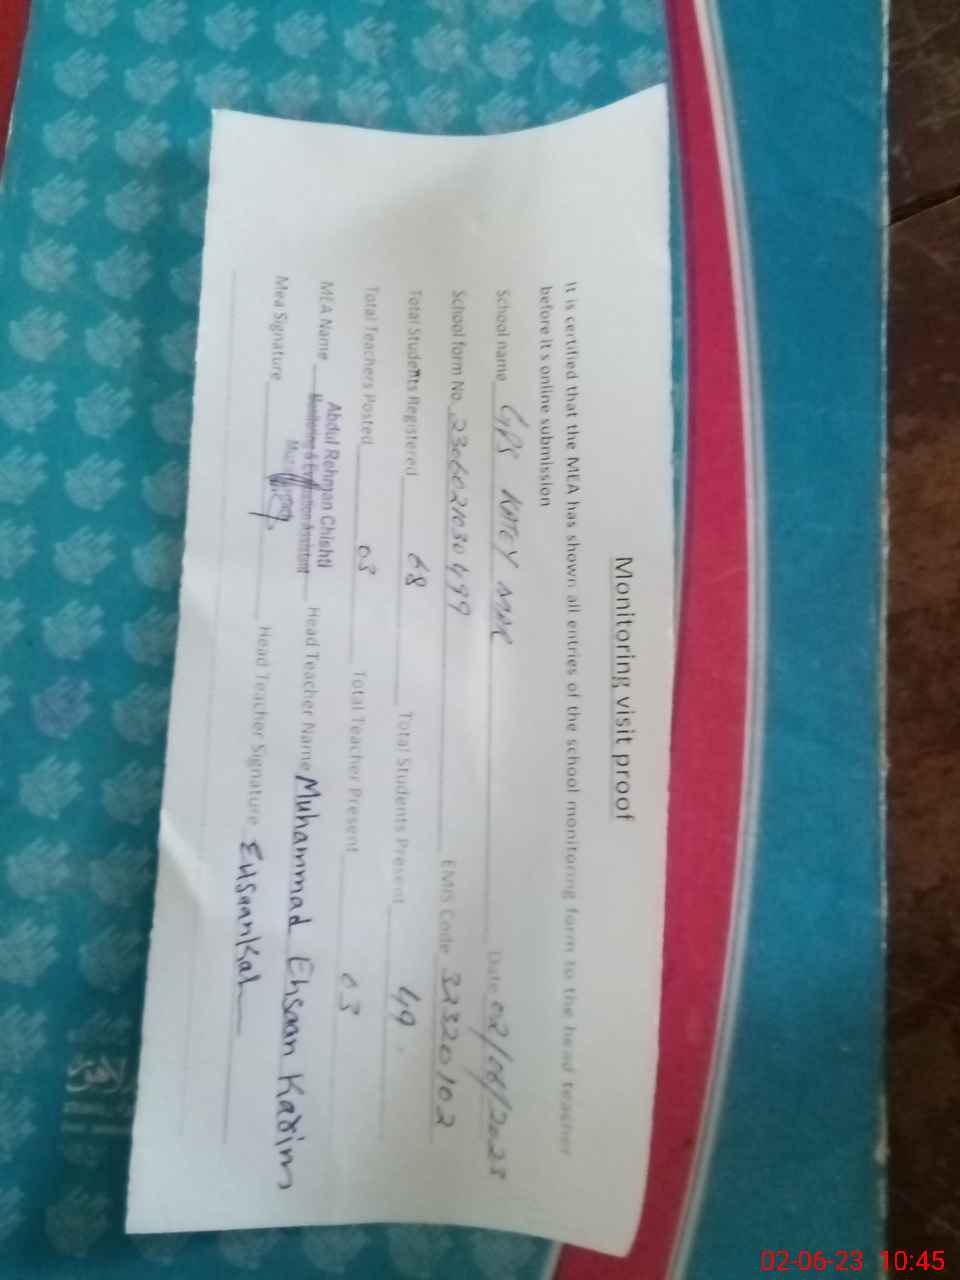 Monitoring visit proof
It is certified that the MEA has shown all entries of the school monitoring form to the head teacher
before it s online submission
School name GPS KATEY MAR Date 02/06/2023
School form No. 2306021030499 EMIS Code 32320102
Total Students Registered 68 Total Students Present 49
Total Teachers Posted 03 Total Teacher Present 03
MEA Name Abdul Rehman Chishti Head Teacher Name Muhammad Ehsaan Karim
Monitoring & Evaluation Assistant
Mea Signature Head Teacher Signature
02-06-23 10:45